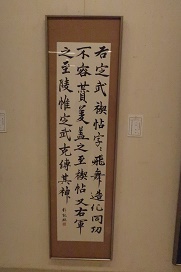 若定武禊帖字々飛舞造化同功
不容贊美蓋之至禊帖又右軍
之至陵惟定武克傳其神